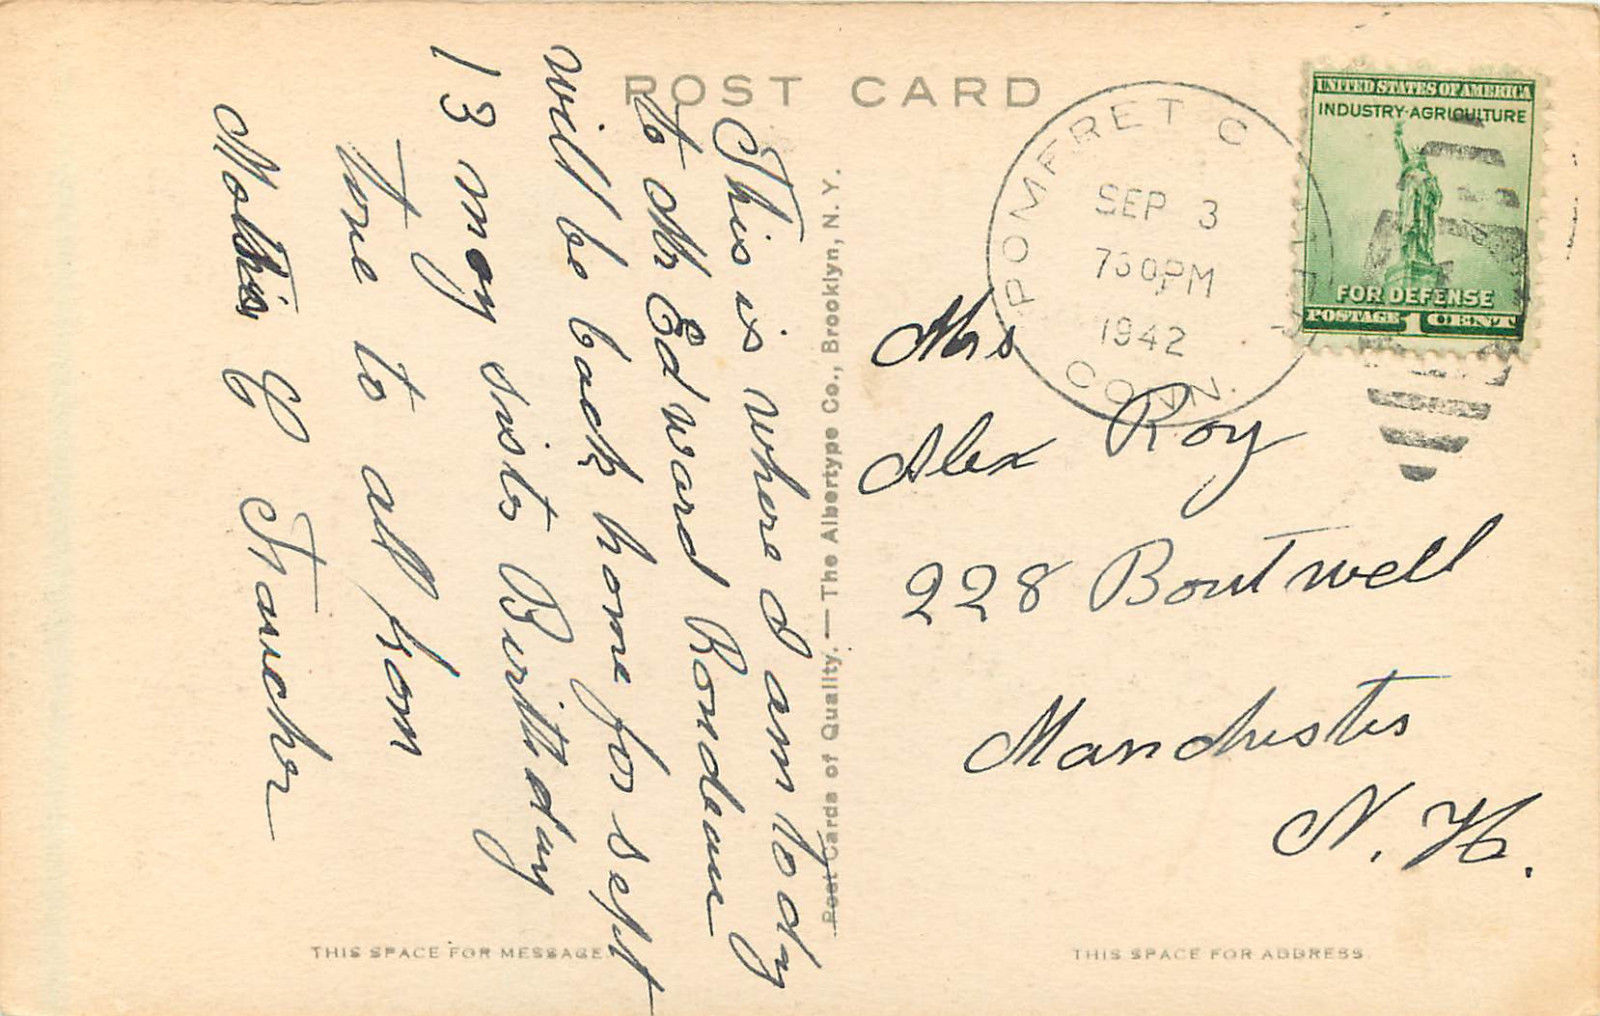 POST CARD
This is where I am to day
to Mr Edward Rondeau
will be back home for sept
13 my sists Birthday
to all from
Mothis & Faucher
Post Cards of Quality. — The Albertype Co., Brooklyn, N. Y.
THIS SPACE FOR MESSAGE.
POMFRET C
SEP 3
730PM
1942
CONN.
UNITED STATES OF AMERICA
INDUSTRY·AGRICULTURE
FOR DEFENSE
POSTAGE 1 CENT
Mrs
Alex Roy
228 Boutwell
Manchester
N. H.
THIS SPACE FOR ADDRESS.